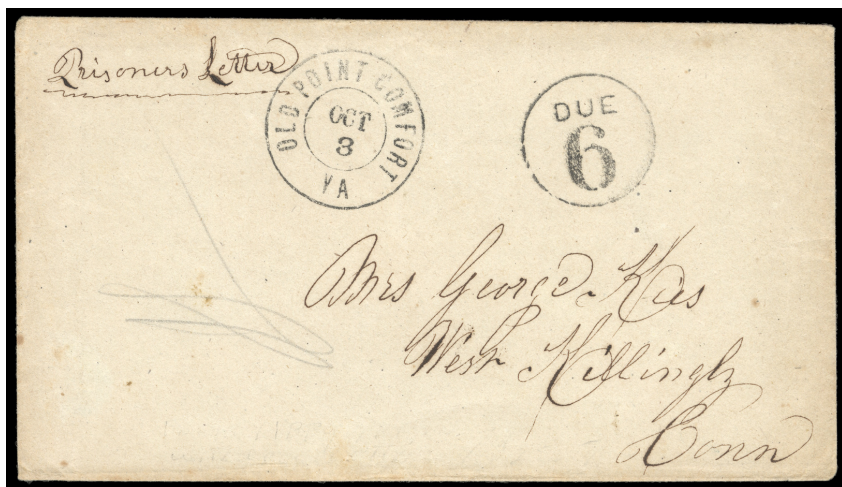 Prisoners Letter
OLD POINT COMFORT
OCT
3
VA
DUE
6
Mrs George Kies
West Killingly
Conn